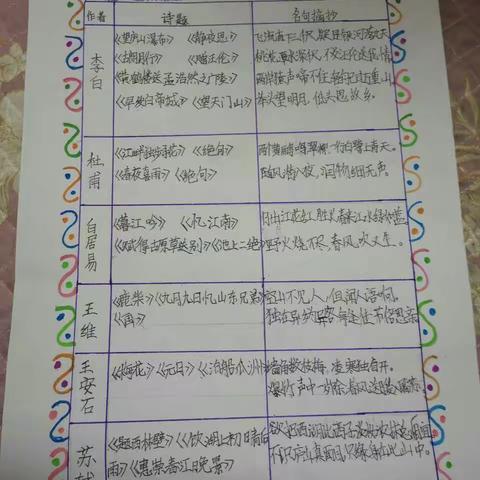 作者 诗题 名句摘抄
李白
《望庐山瀑布》《静夜思》
《古朗月行》《赠汪伦》
《黄鹤楼送孟浩然之广陵》
《早发白帝城》《望天门山》
飞流直下三千尺，疑是银河落九天
桃花潭水深千尺，不及汪伦送我情
两岸猿声啼不住，轻舟已过万重山
举头望明月，低头思故乡。
杜甫
《江畔独步寻花》《绝句》
《春夜喜雨》《绝句》
两个黄鹂鸣翠柳，一行白鹭上青天。
随风潜入夜，润物细无声。
白居易
《暮江吟》《忆江南》
《赋得古原草送别》《池上二绝》
日出江花红胜火，春来江水绿如蓝
野火烧不尽，春风吹又生。
王维
《鹿柴》《九月九日忆山东兄弟》
空山不见人，但闻人语响。
独在异乡为异客，每逢佳节倍思亲
王安石
《梅花》《元日》《泊船瓜洲》
墙角数枝梅，凌寒独自开。
爆竹声中一岁除，春风送暖入屠苏。
苏轼
《题西林壁》《饮湖上初晴后
雨》《惠崇春江晚景》
欲把西湖比西子，淡妆浓抹总相宜
不识庐山真面目，只缘身在此山中。